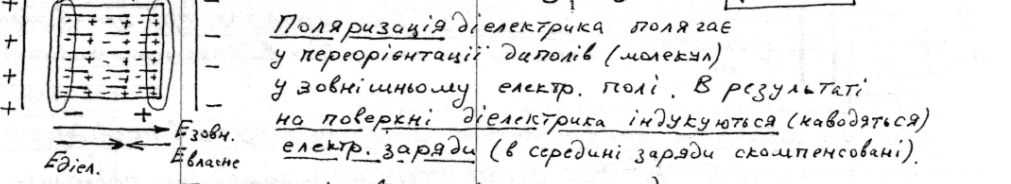 Поляризація діелектрика полягає
у переорієнтації диполів (молекул)
у зовнішньому електр. полі. В результаті
на поверхні діелектрика індукуються (наводяться)
електр. заряди (в середині заряди скомпенсовані).
+ −
+ −
+ −
+ −
− +
Eзовн.
Eдіел. Eвласне